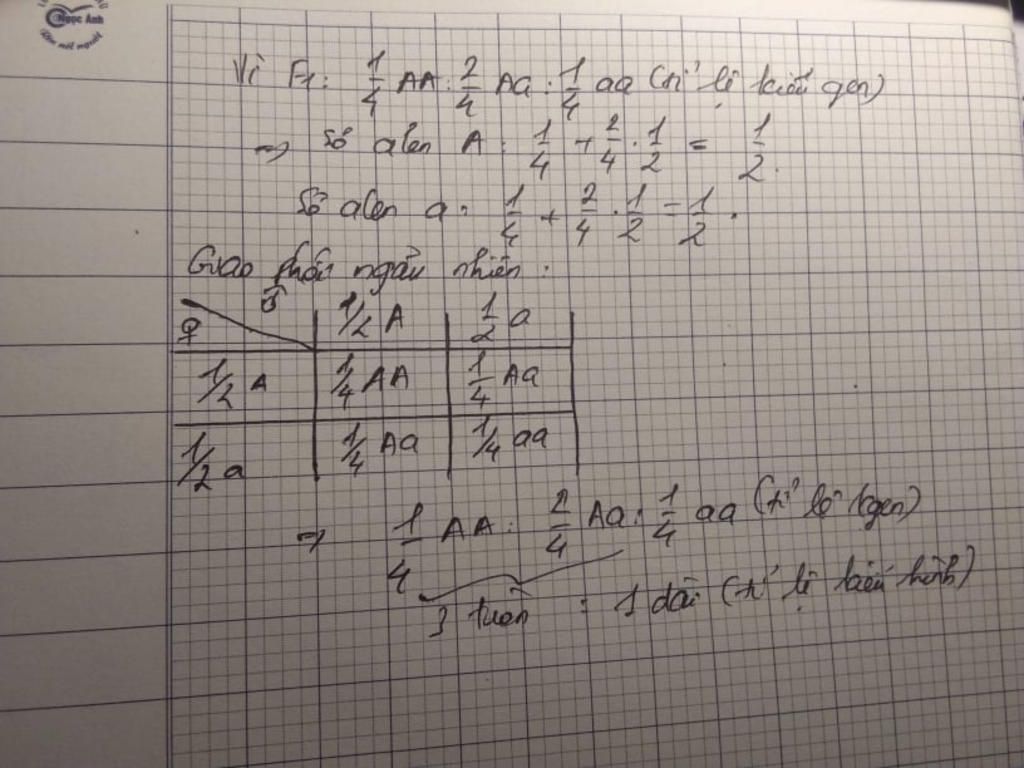 Ngọc Anh
Vì F1: 1/4 AA : 2/4 Aa : 1/4 aa (tỉ lệ kiểu gen)
=> Số alen A: 1/4 + 2/4 . 1/2 = 1/2.
Số alen a: 1/4 + 2/4 . 1/2 = 1/2.
Giao phối ngẫu nhiên:
♂ 1/2 A 1/2 a
♀
1/2 A 1/4 AA 1/4 Aa
1/2 a 1/4 Aa 1/4 aa
=> 1/4 AA : 2/4 Aa : 1/4 aa (tỉ lệ kgen)
3 : 1 dài (tỉ lệ kiểu hình)